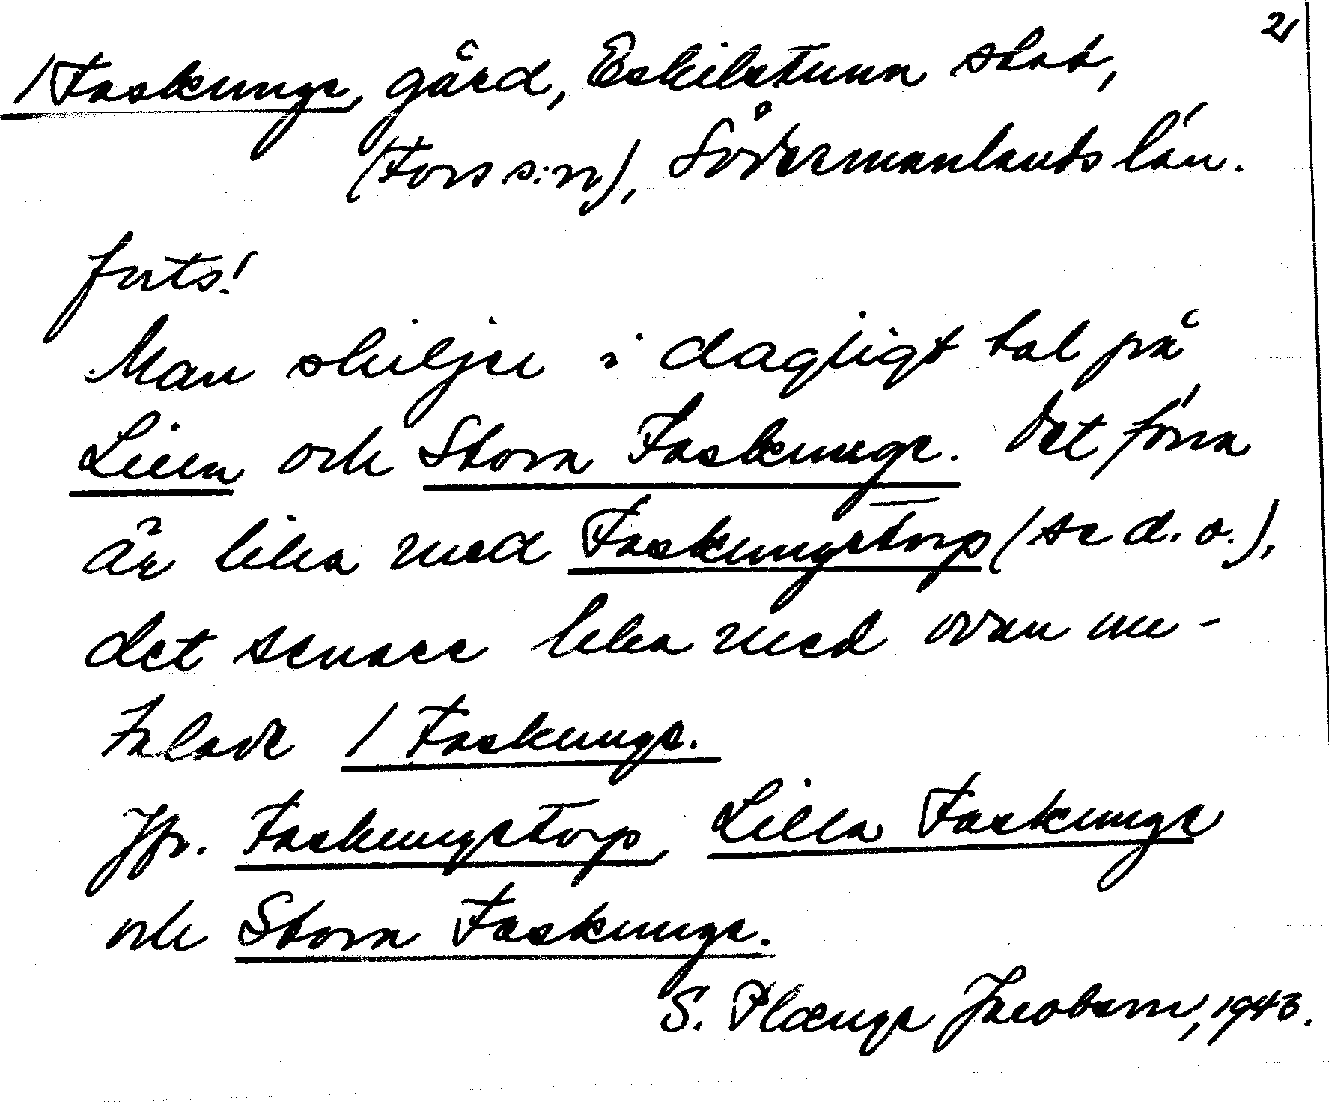 2/
/Faskunge, gård, Eskilstuna stad,
(Fors s:n), Södermanlands län.
forts!
Man skiljer i dagligt tal på
Lilla och Stora Faskunge. Det förra
är lika med Faskungetorp (se d. o.),
det senare lika med ovan me-
/ Faskunge.
Jfr. Faskungetorp, Lilla Faskunge
och Stora Faskunge.
S. Plænge Jacobson, 1943.